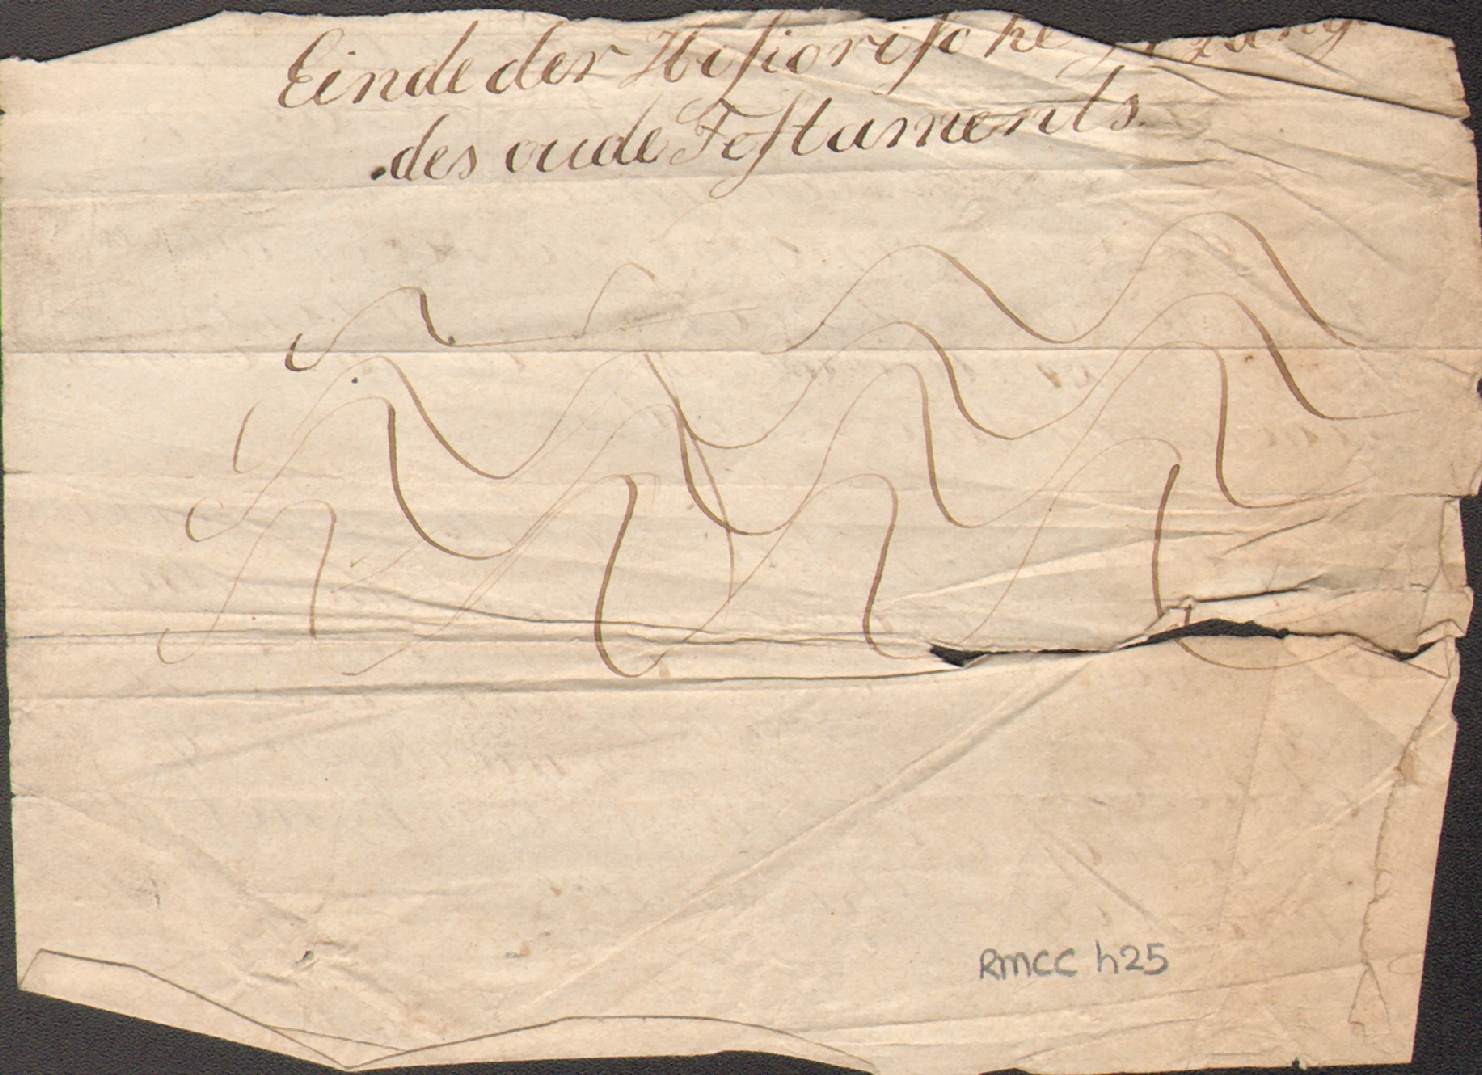 Einde der Historische
des oude Testaments.
RMCC h25